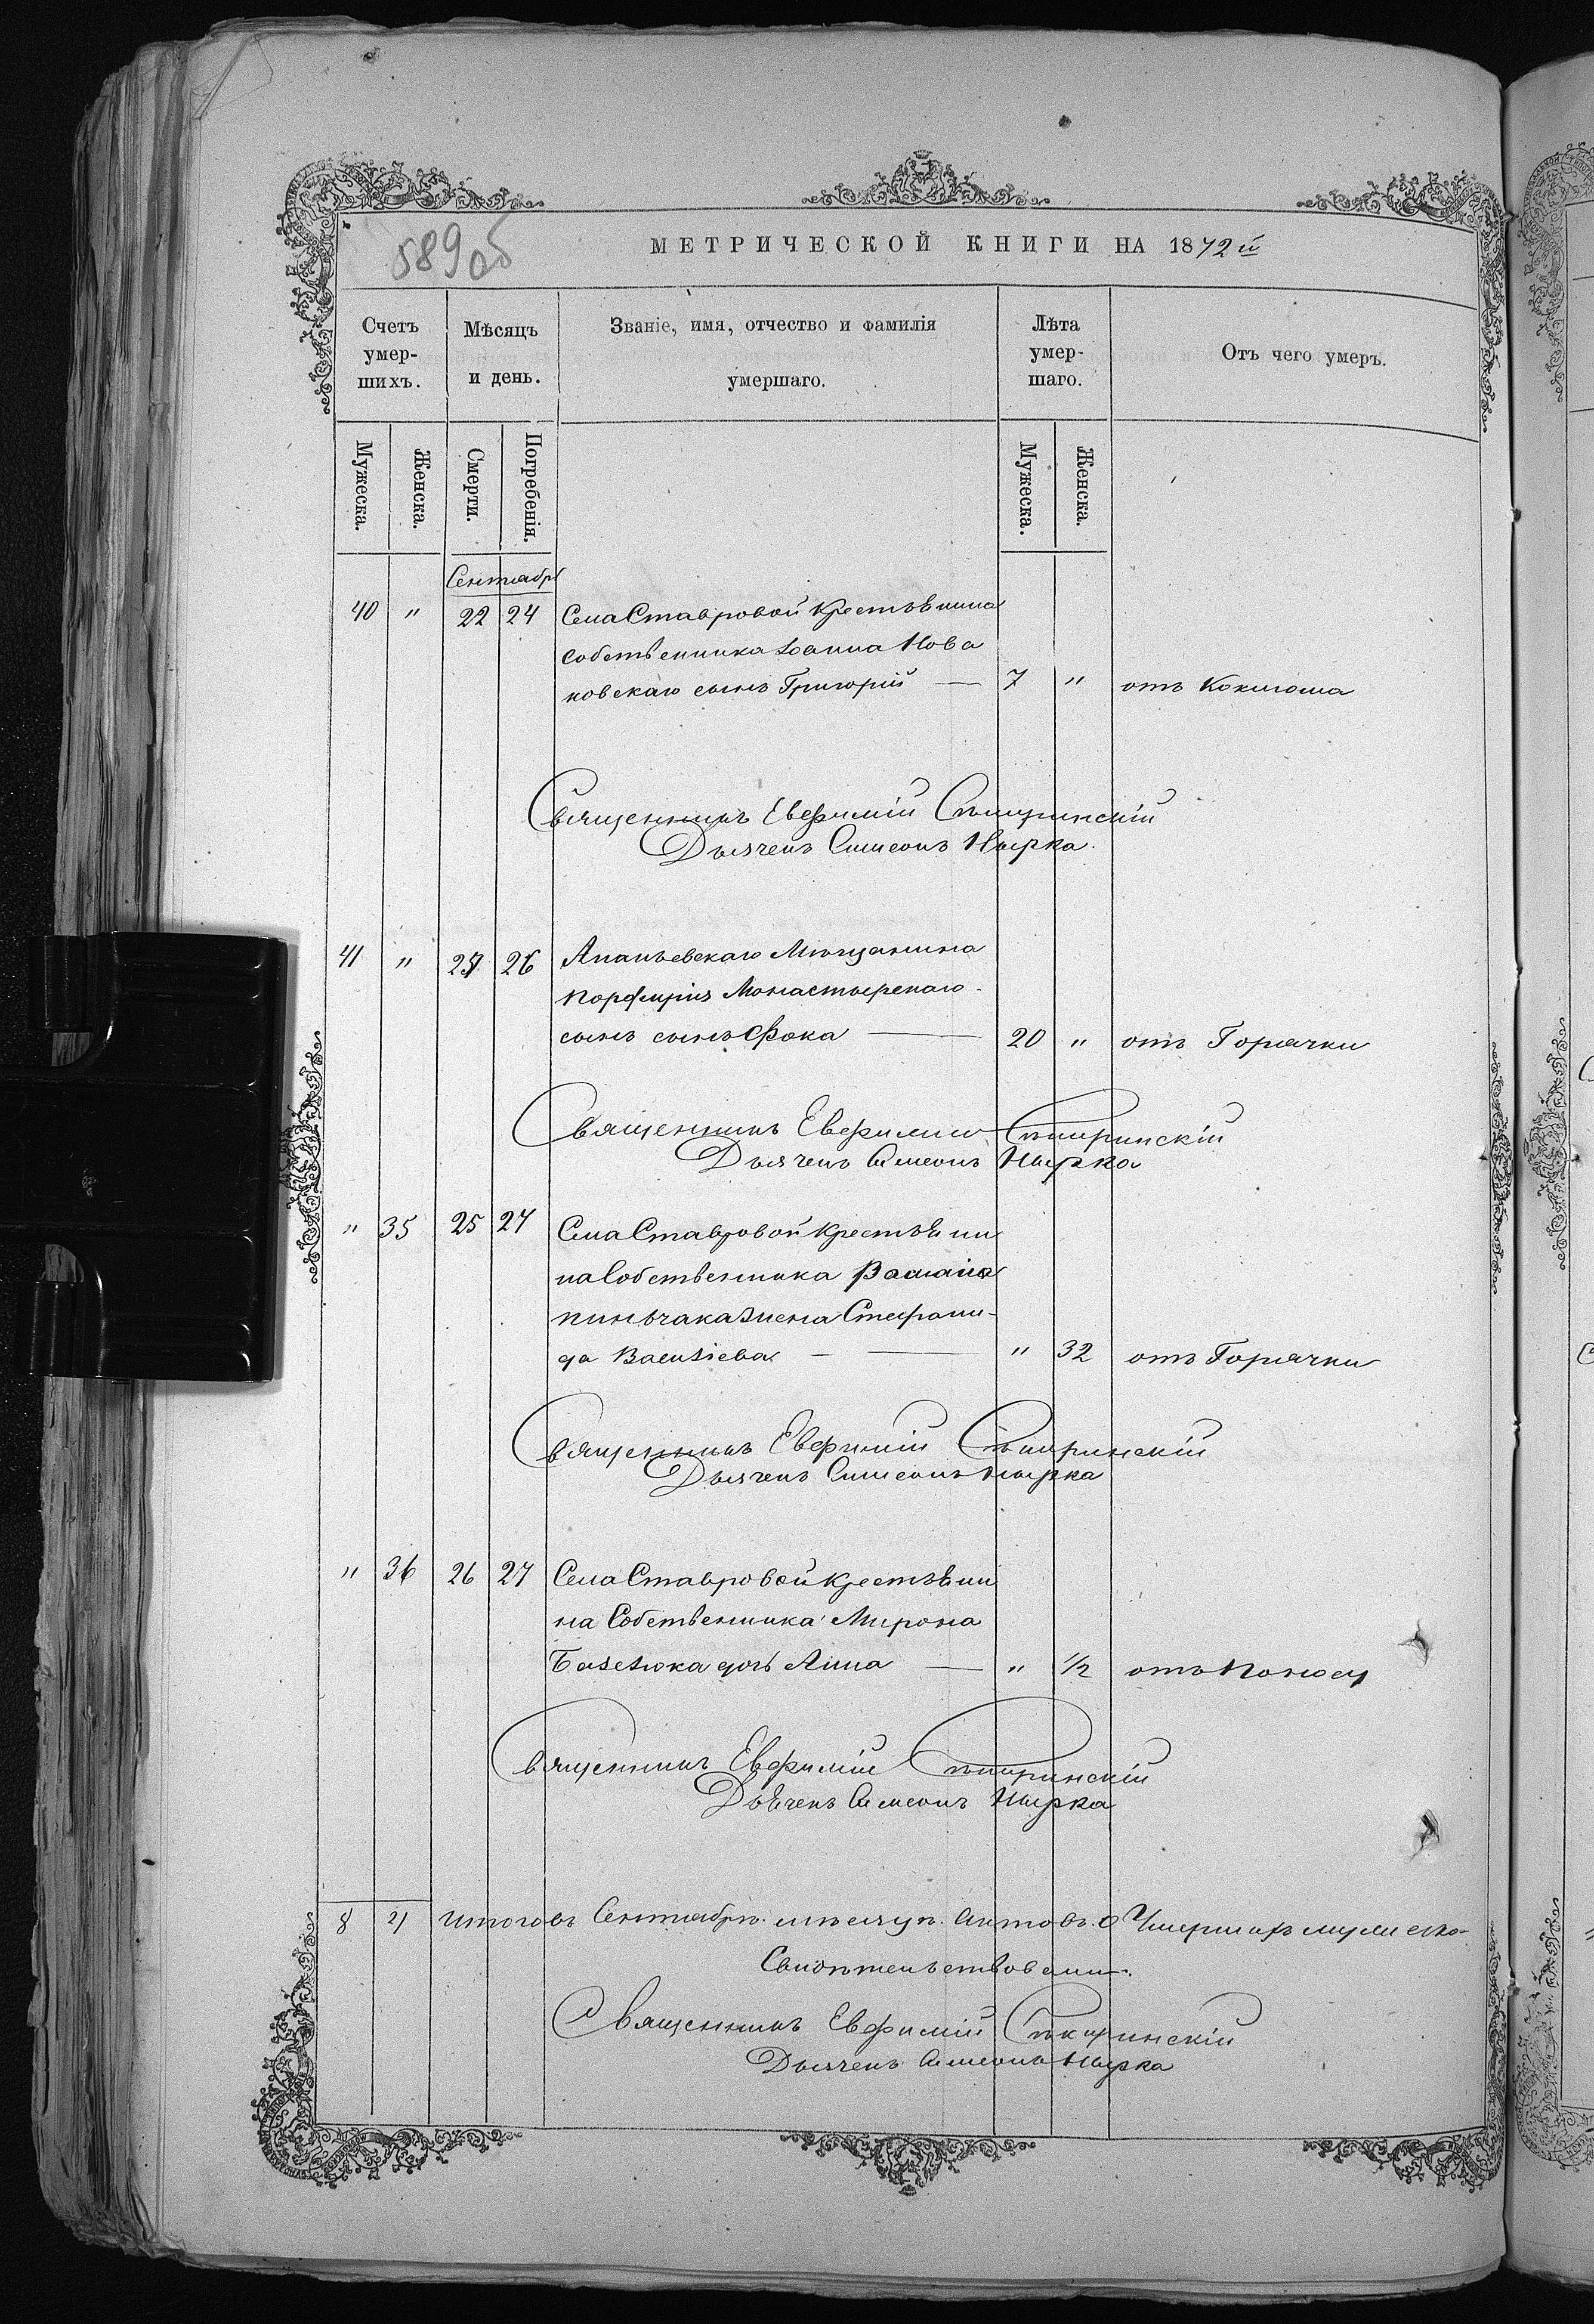 589 об
МЕТРИЧЕСКОЙ КНИГИ НА 1872й
Счетъ умер-шихъ. Мѣсяцъ и день. Званіе, имя, отчество и фамилія умершаго. Лѣта умер-шаго. Отъ чего умеръ.
Мужеска. Женска. Смерти. Погребенія. Мужеска. Женска.
Сентябрь
40 " 22 24 Села Ставровой Крестьянина
собственника Іоанна Нова
ковскаго сынъ Григорій — 7 " отъ Коклюша
Священникъ Евфимій Сѣкиринскій
Дьячекъ Симеонъ Нырка.
41 " 25 26 Ананьевскаго Мѣщанина
Порфирія Монастырскаго
сынъ сынъ Фока — 20 " отъ Горячки
Священникъ Евфимій Сѣкиринскій
Дьячекъ Симеонъ Нырка
" 35 25 27 Села Ставровой Крестьяни
на Собственника
жена Стефани-
да — " 32 отъ Горячки
Священникъ Евфимій Сѣкиринскій
Дьячекъ Симеонъ Нырка
" 36 26 27 Села Ставровой Крестьяни
на Собственника Мирона
дочь Анна — " 1/2 отъ Поносу
Священникъ Евфимій Сѣкиринскій
Дьячекъ Симеонъ Нырка
8 Итого въ Сентябрѣ мѣсяцѣ Актовъ о Умершихъ мужеска
Свидѣтельствовали
Священникъ Евфимій Сѣкиринскій
Дьячекъ Симеонъ Нырка